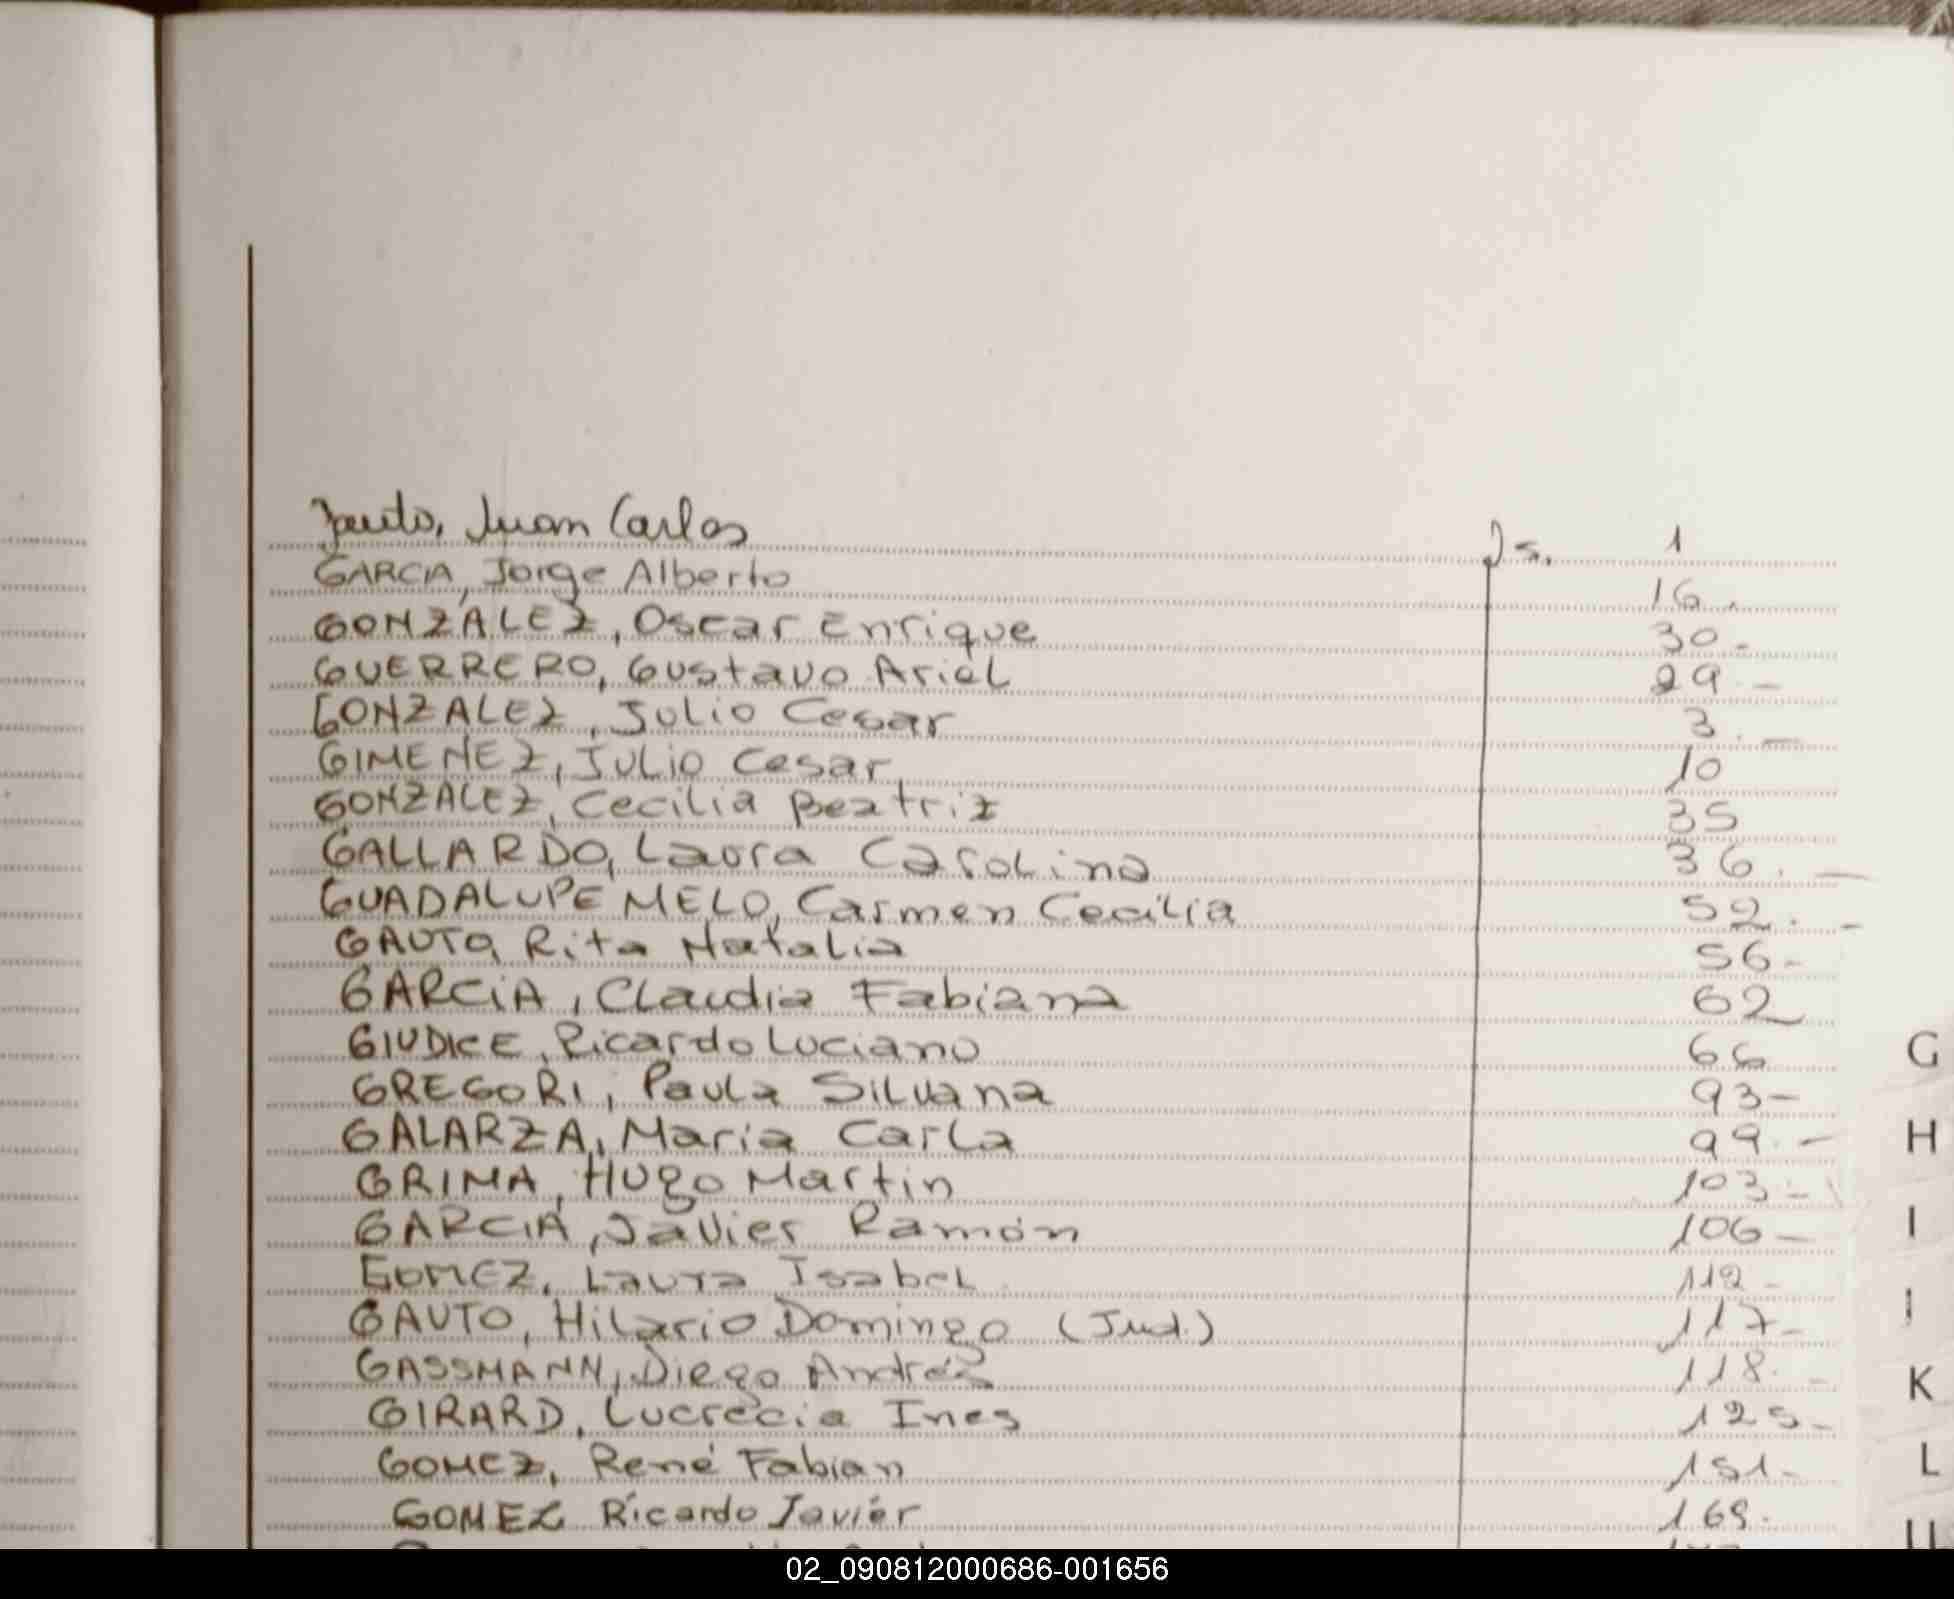 Gauto, Juan Carlos Js. 1
GARCIA, Jorge Alberto 16.
GONZÁLEZ, Oscar Enrique 30.-
GUERRERO, Gustavo Ariel 29.-
GONZALEZ, Julio Cesar 3.-
GIMENEZ, Julio Cesar 10
GONZALEZ, Cecilia Beatriz 35
GALLARDO, Laura Carolina 36.-
GUADALUPE MELO, Carmen Cecilia 52.-
GAUTO, Rita Natalia 56-
GARCIA, Claudia Fabiana 62
GIUDICE, Ricardo Luciano 66
GREGORI, Paula Silvana 93-
GALARZA, Maria Carla 99.-
GRIMA, Hugo Martin 103.-
GARCIA, Javier Ramón 106-
GOMEZ, Laura Isabel 112-
GAUTO, Hilario Domingo (Jud.) 117-
GASSMANN, Diego Andrés 118.-
GIRARD, Lucrecia Ines 125-
GOMEZ, René Fabian 151-
GOMEZ Ricardo Javier 169.
G
H
I
J
K
L
02_090812000686-001656